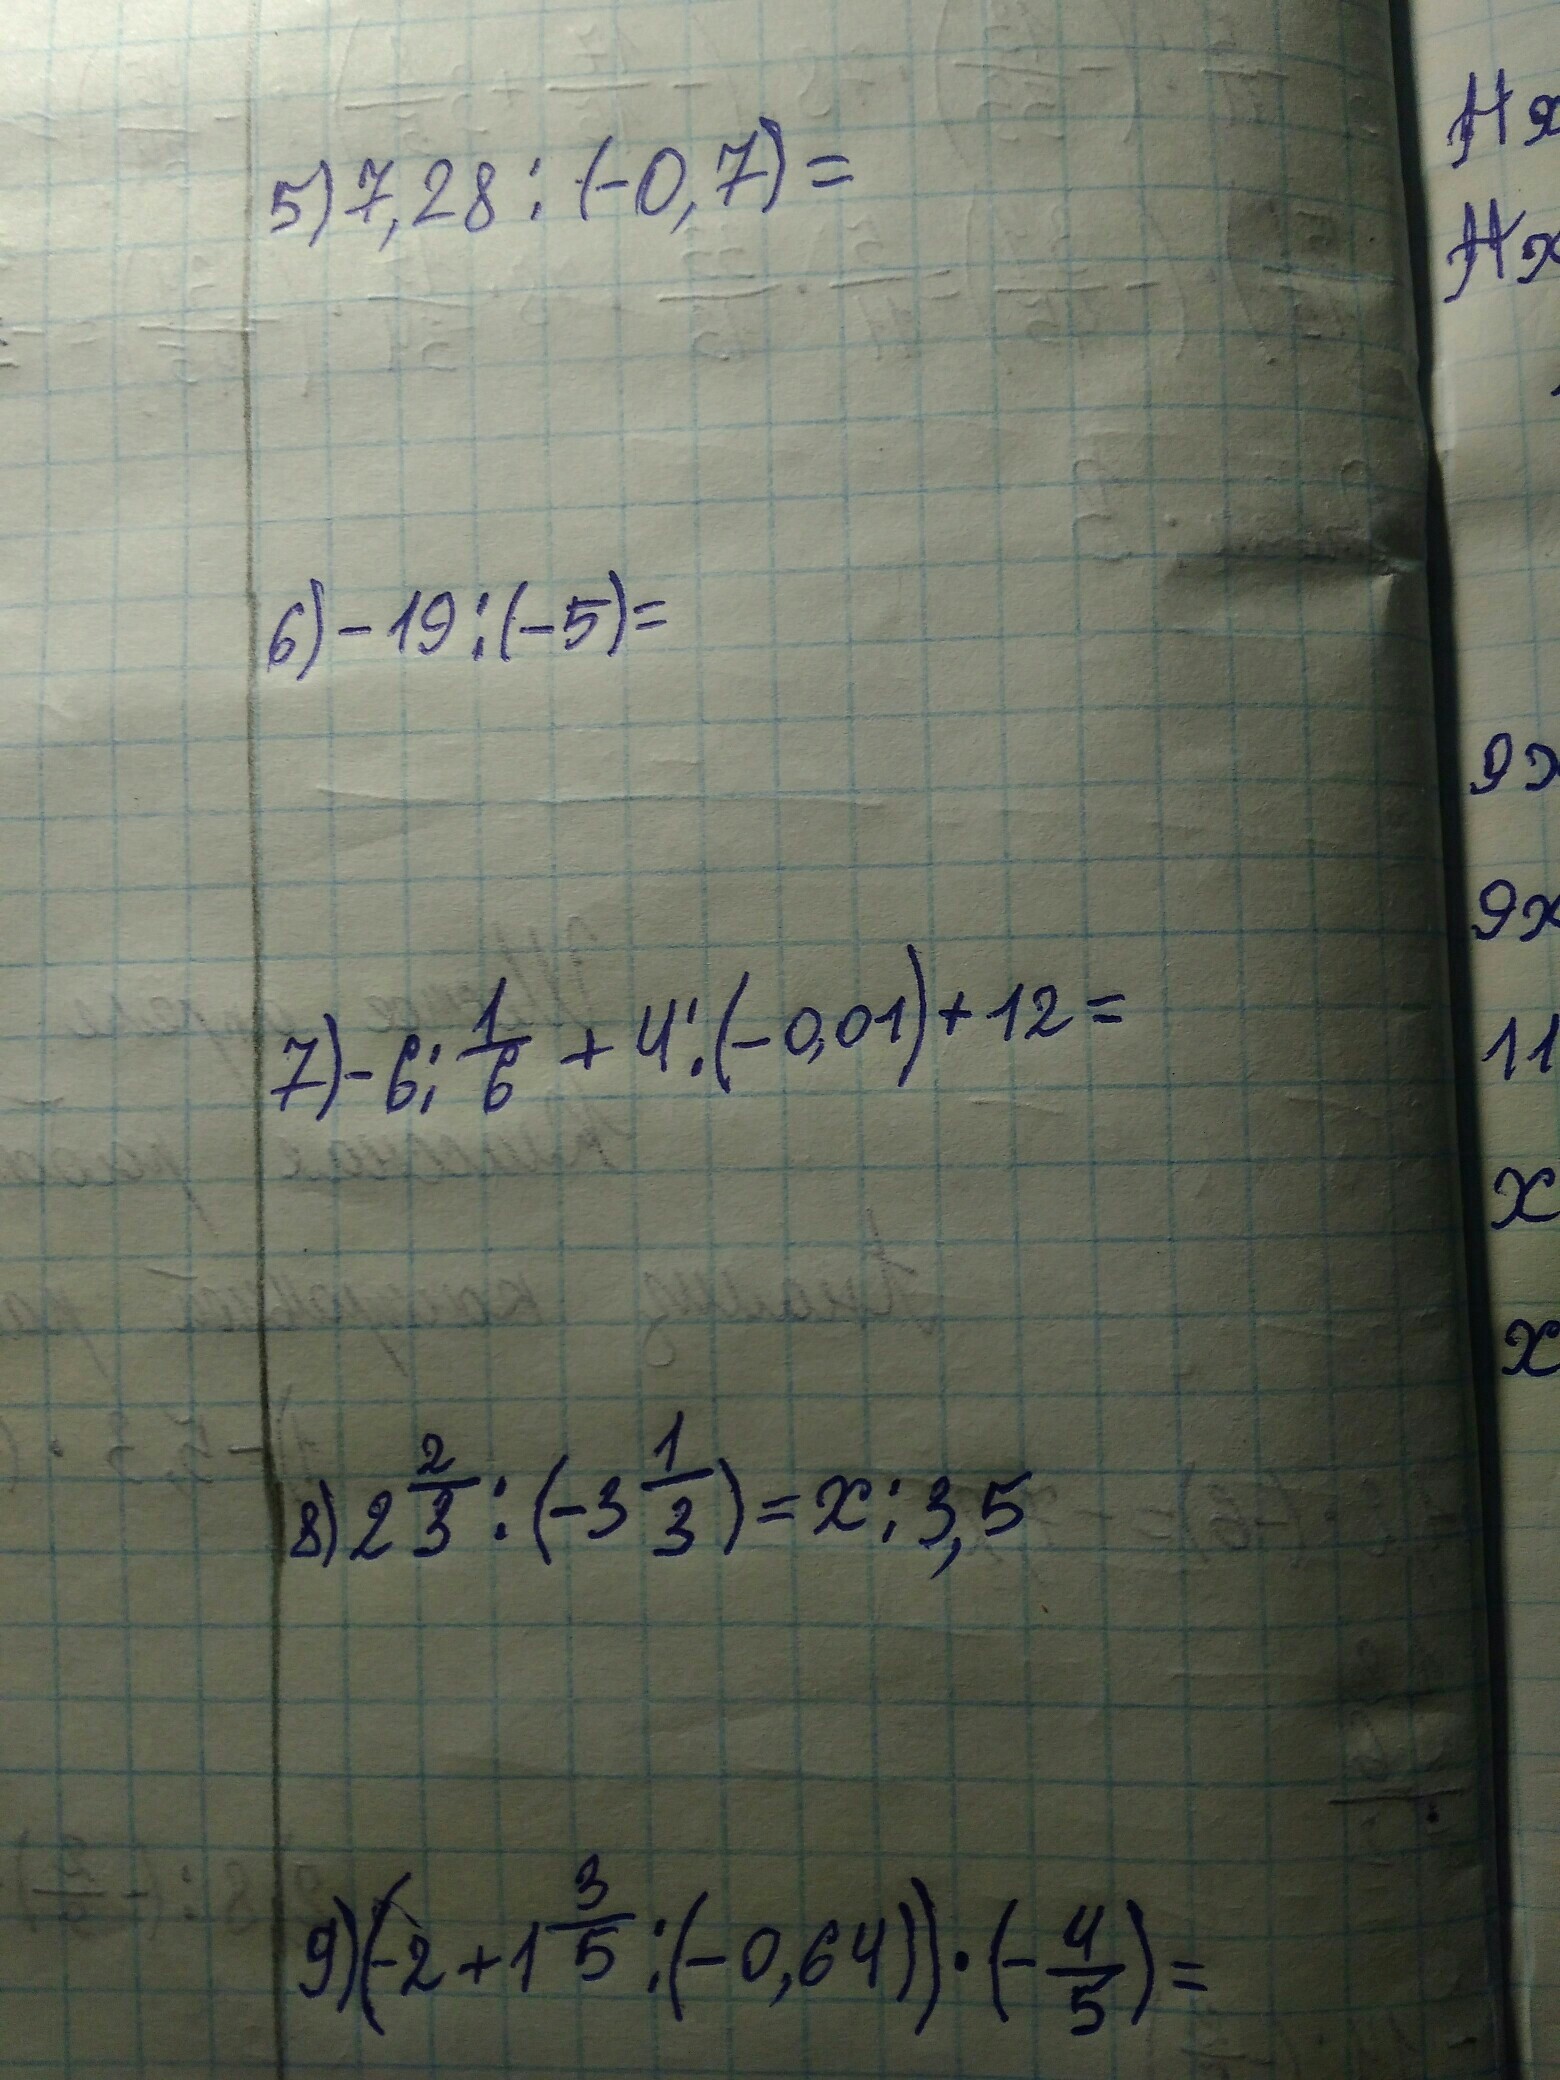 5) 7,28 : (-0,7) =
6) -19 : (-5) =
7) -6 : 1/6 + 4 : (-0,01) + 12 =
8) 2 2/3 : (-3 1/3) = x : 3,5
9) (-2 + 1 3/5 : (-0,64)) · (-4/5) =
9x
11
x
x